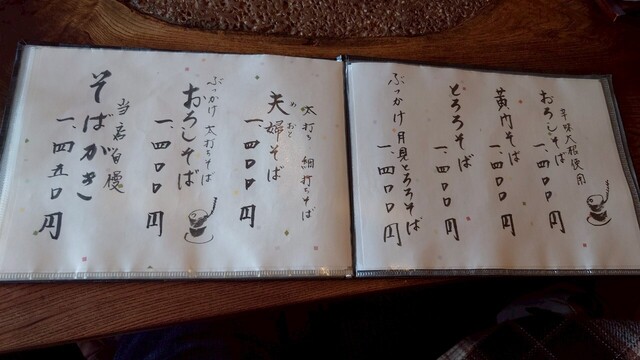 辛味大根使用
おろしそば
一、四〇〇円
黄内そば
一、四〇〇円
とろろそば
一、四〇〇円
ぶっかけ月見とろろそば
一、四〇〇円
太打ち 細打ちそば
めおと
夫婦そば
一、四〇〇円
ぶっかけ 太打ちそば
おろしそば
一、四〇〇円
当店自慢
そばがき
一、四五〇円